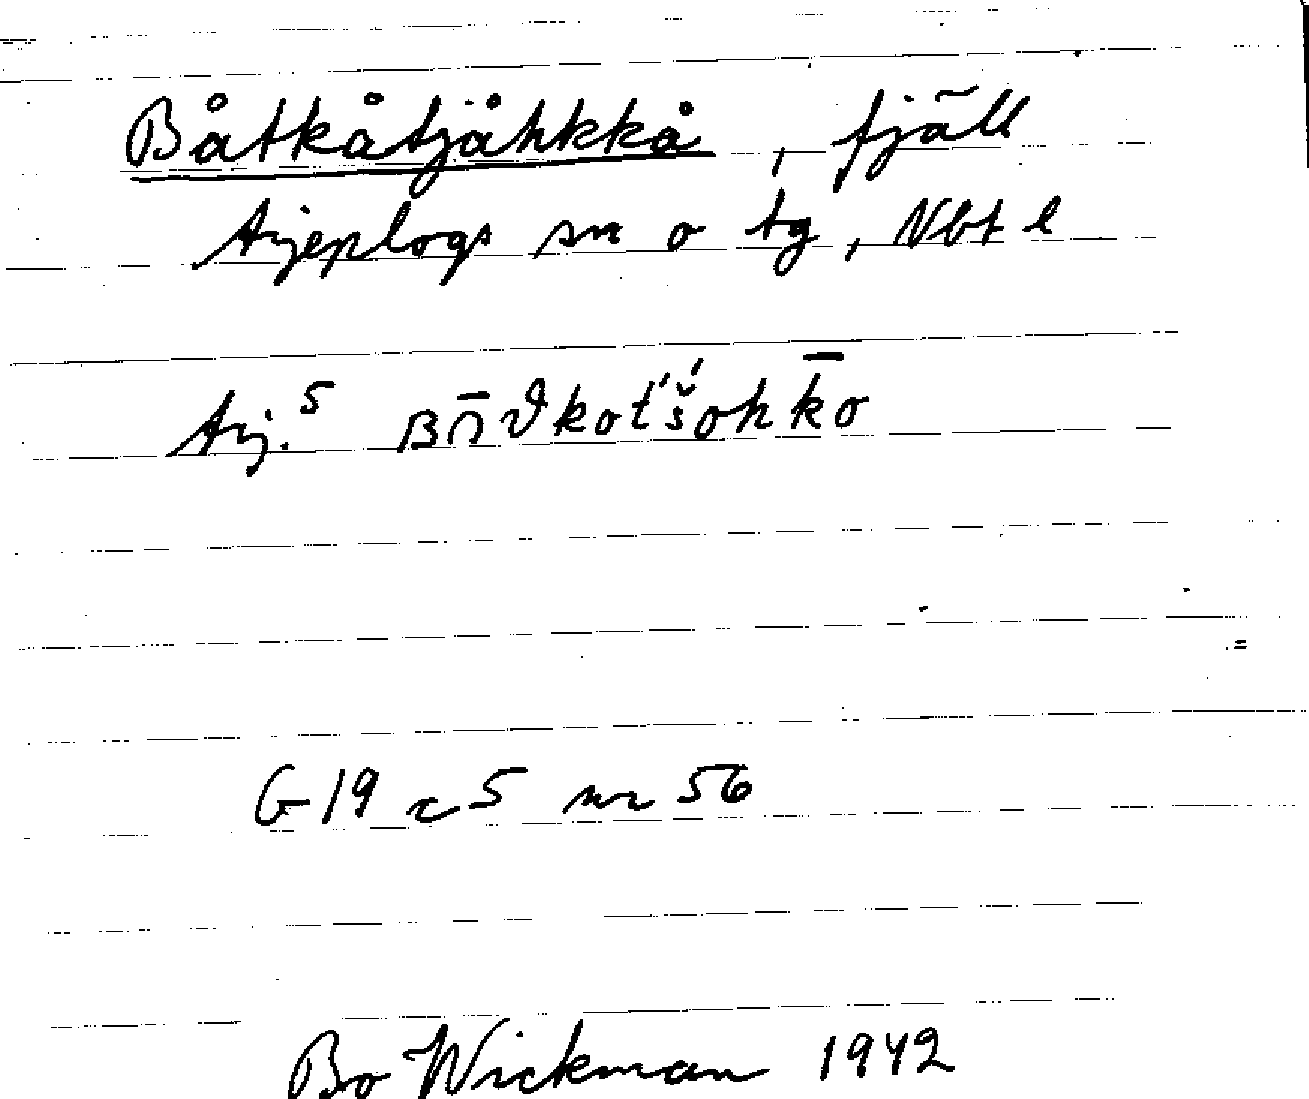 Båtkåtjåhkkå, fjäll
Arjeplogs sn o tg, Nbt l
Arj.⁵ ʙn̄ϑkot́š́ohk̄o
G19 c5 nr 56
Bo Wickman 1942